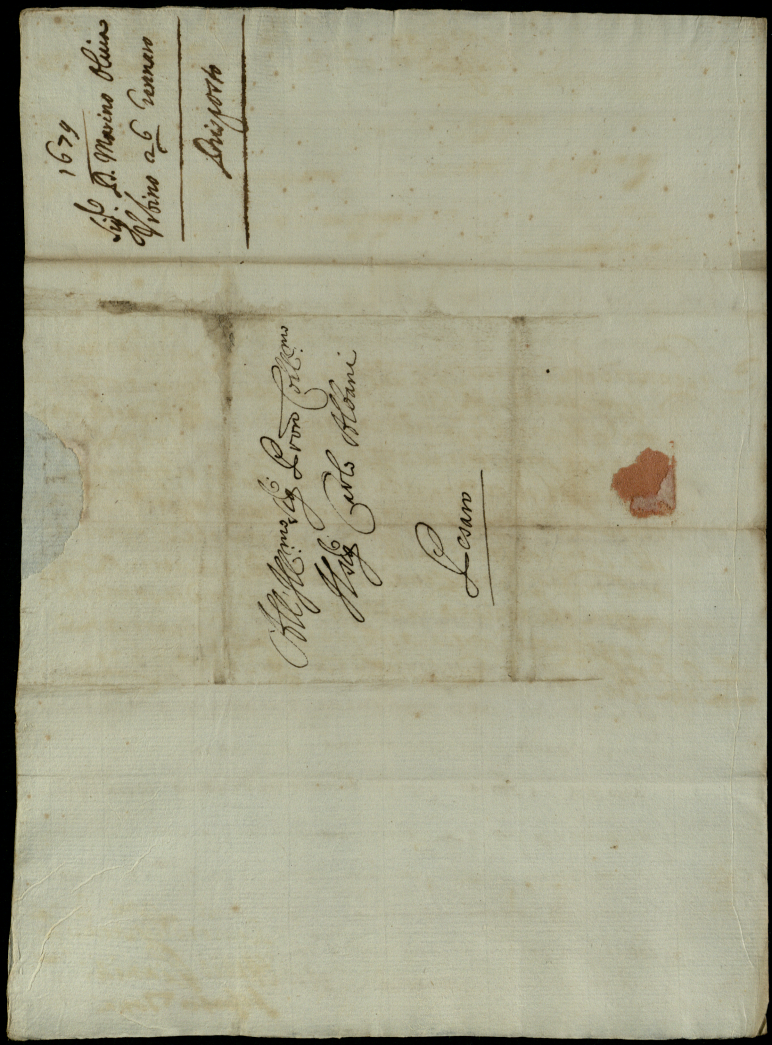 1679
Sig.r D. Marino Oliua
Vrbino a 6 Gennaro
Risposto
All' Ill.mo Sig.r Pron Coll.mo
Il Sig.r Carlo Albani
Pesaro